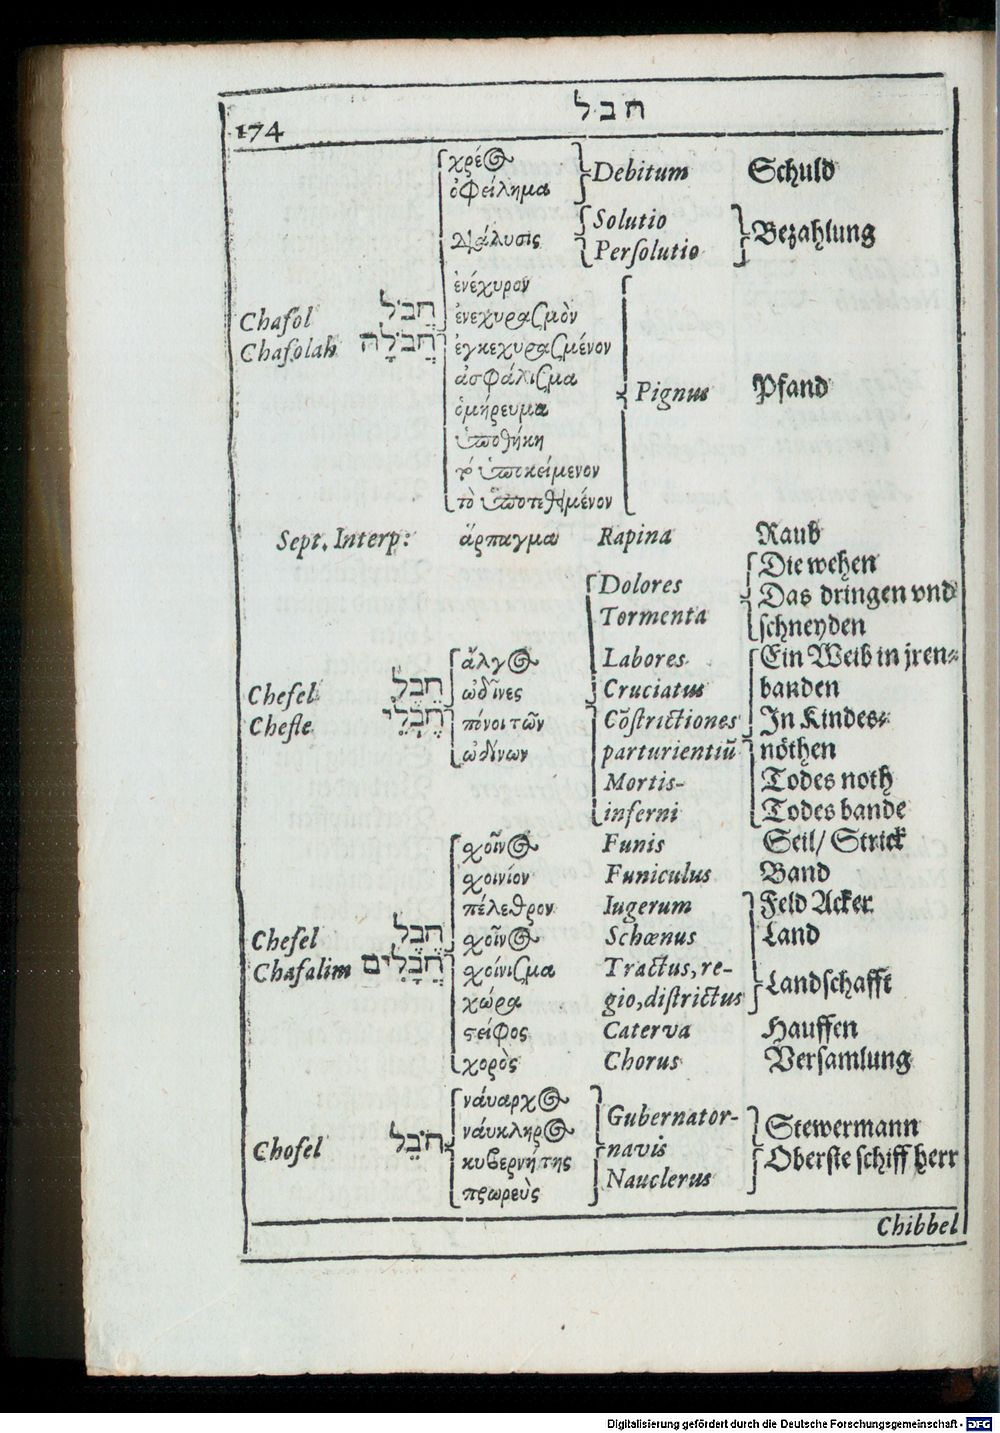 174 חבל
χρέος Debitum Schuld
ὀφείλημα
Solutio
διάλυσις Bezahlung
Persolutio
ἐνέχυρον
Chafol חֲבֹל ἐνεχυρασμὸν
Chafolah חֲבֹלָה ἐγκεχυρασμένον
ἀσφάλισμα
Pignus Pfand
ὁμήρευμα
ὑποθήκη
τὸ ὑποκείμενον
τὸ ὑποτεθημένον
Sept. Interp: ἅρπαγμα Rapina Raub
Die wehen
Dolores
Das dringen vnd
Tormenta schneyden
ἄλγος Labores Ein Weib in jren-
Chefel חֵבֶל ὠδῖνες Cruciatus banden
Chefle חֶבְלֵי πόνοι τῶν Cõstrictiones In Kindes-
ὠδίνων parturientiũ nöthen
Mortis- Todes noth
inferni Todes bande
σχοῖνος Funis Seil/ Strick
σχοινίον Funiculus Band
πέλεθρον Iugerum Feld Acker
Chefel חֶבֶל σχοῖνος Schœnus Land
Chafalim חֲבָלִים σχοίνισμα Tractus, re-
Landschafft
χώρα gio, districtus
στεῖφος Caterva Hauffen
χορὸς Chorus Versamlung
νάυαρχος
Gubernator-
νάυκληρος Stewermann
Chofel חֹבֵל navis
κυβερνήτης Oberste schiff herr
πρωρεὺς Nauclerus
Chibbel
Digitalisierung gefördert durch die Deutsche Forschungsgemeinschaft - DFG